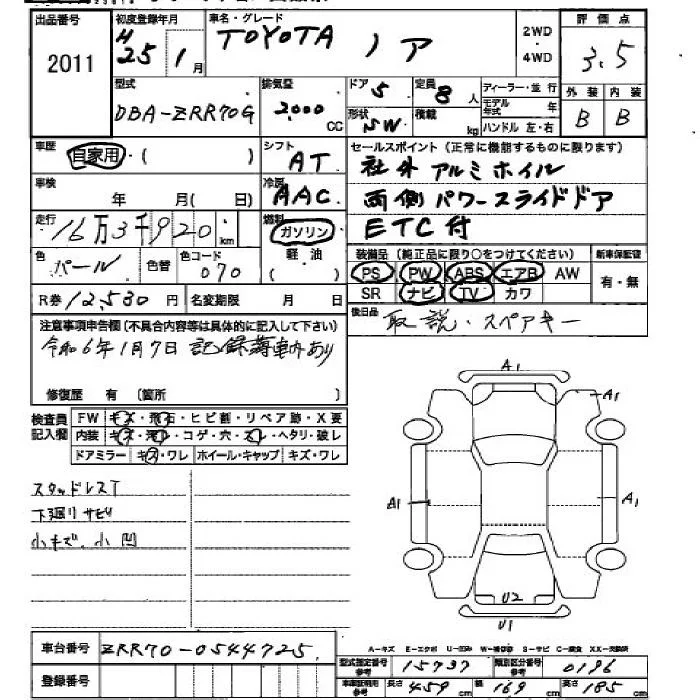 出品番号 2011
初度登録年月 H25年1月
車名・グレード TOYOTA ノア
2WD・4WD
評価点 3.5
型式 DBA-ZRR70G
排気量 2,000 CC
ドア 5
形状 SW
定員 8人
積載 kg
ディーラー・並行
モデル年式 年
ハンドル 左・右
外装 B
内装 B
車歴 自家用・( )
シフト AT
セールスポイント (正常に機能するものに限ります)
社外アルミホイル
両側パワースライドドア
ETC付
車検 年 月(日)
冷房 AAC
走行 16万3千920 km
燃料 ガソリン
軽・油
( )
色 パール
色替
色コード 070
装備品 (純正品に限り○をつけてください)
新車保証書
PS PW ABS エアB AW
SR ナビ TV カワ
有・無
R券 12,530円
名変期限 月 日
後日品 取説・スペアキー
注意事項申告欄(不具合内容等は具体的に記入して下さい)
令和6年1月7日 記録簿
あり
修復歴 有 〔箇所 〕
検査員記入欄
FW キズ・飛石・ヒビ割・リペア跡・X要
内装 キズ・汚レ・コゲ・穴・スレ・ヘタリ・破レ
ドアミラー キズ・ワレ ホイール・キャップ キズ・ワレ
スタッドレスT
下廻りサビ
小キズ、小凹
A1
A1
A1
A1
U2
U1
車台番号 ZRR70-0544725
A-キズ E-エクボ S-サビ C-腐食
型式指定番号 参考 15737
類別区分番号 参考 0196
登録番号
長さ 459 cm
幅 169 cm
高さ 185 cm